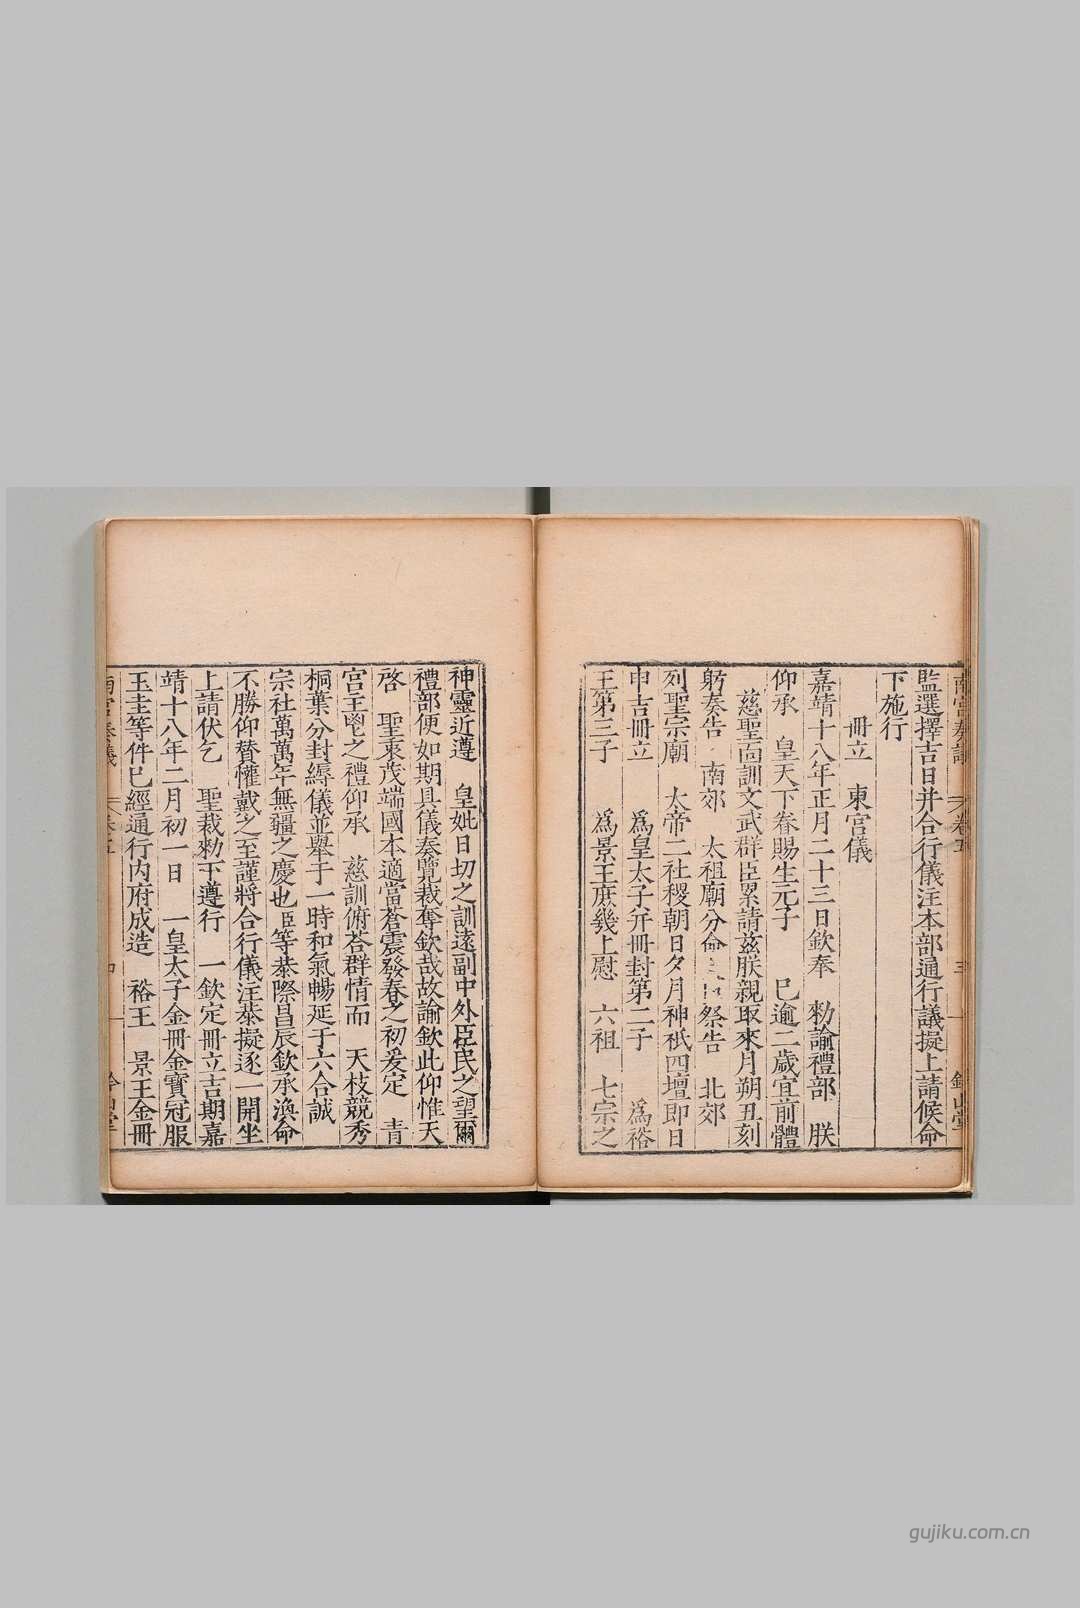 監選擇吉日并合行儀注本部通行議擬上請候命
下施行
冊立 東宮儀
嘉靖十八年正月二十三日欽奉 勅諭禮部 朕
仰承 皇天下眷賜生元子 已逾二歲宜前體
慈聖面訓文武群臣累請茲朕親取來月朔丑刻
躬奏告 南郊 太祖廟分命 祭告 北郊
列聖宗廟 太帝二社稷朝日夕月神祇四壇即日
申吉冊立 爲皇太子并冊封第二子 爲裕
王第三子 爲景王庶幾上慰 六祖 七宗之
神靈近遵 皇妣日切之訓遠副中外臣民之望爾
禮部便如期具儀奏覽裁奪欽哉故諭欽此仰惟天
啓 聖衷茂端國本適當蒼震發春之初爰定 青
宮主鬯之禮仰承 慈訓俯荅群情而 天枝競秀
桐葉分封縟儀並舉于一時和氣暢延于六合誠
宗社萬萬年無疆之慶也臣等恭際昌辰欽承渙命
不勝仰賛懽戴之至謹將合行儀注恭擬逐一開坐
上請伏乞 聖裁勑下遵行 一欽定冊立吉期嘉
靖十八年二月初一日 一皇太子金冊金寶冠服
玉圭等件已經通行內府成造 裕王 景王金冊
南宮奏議 卷五 四
gujiku.com.cn